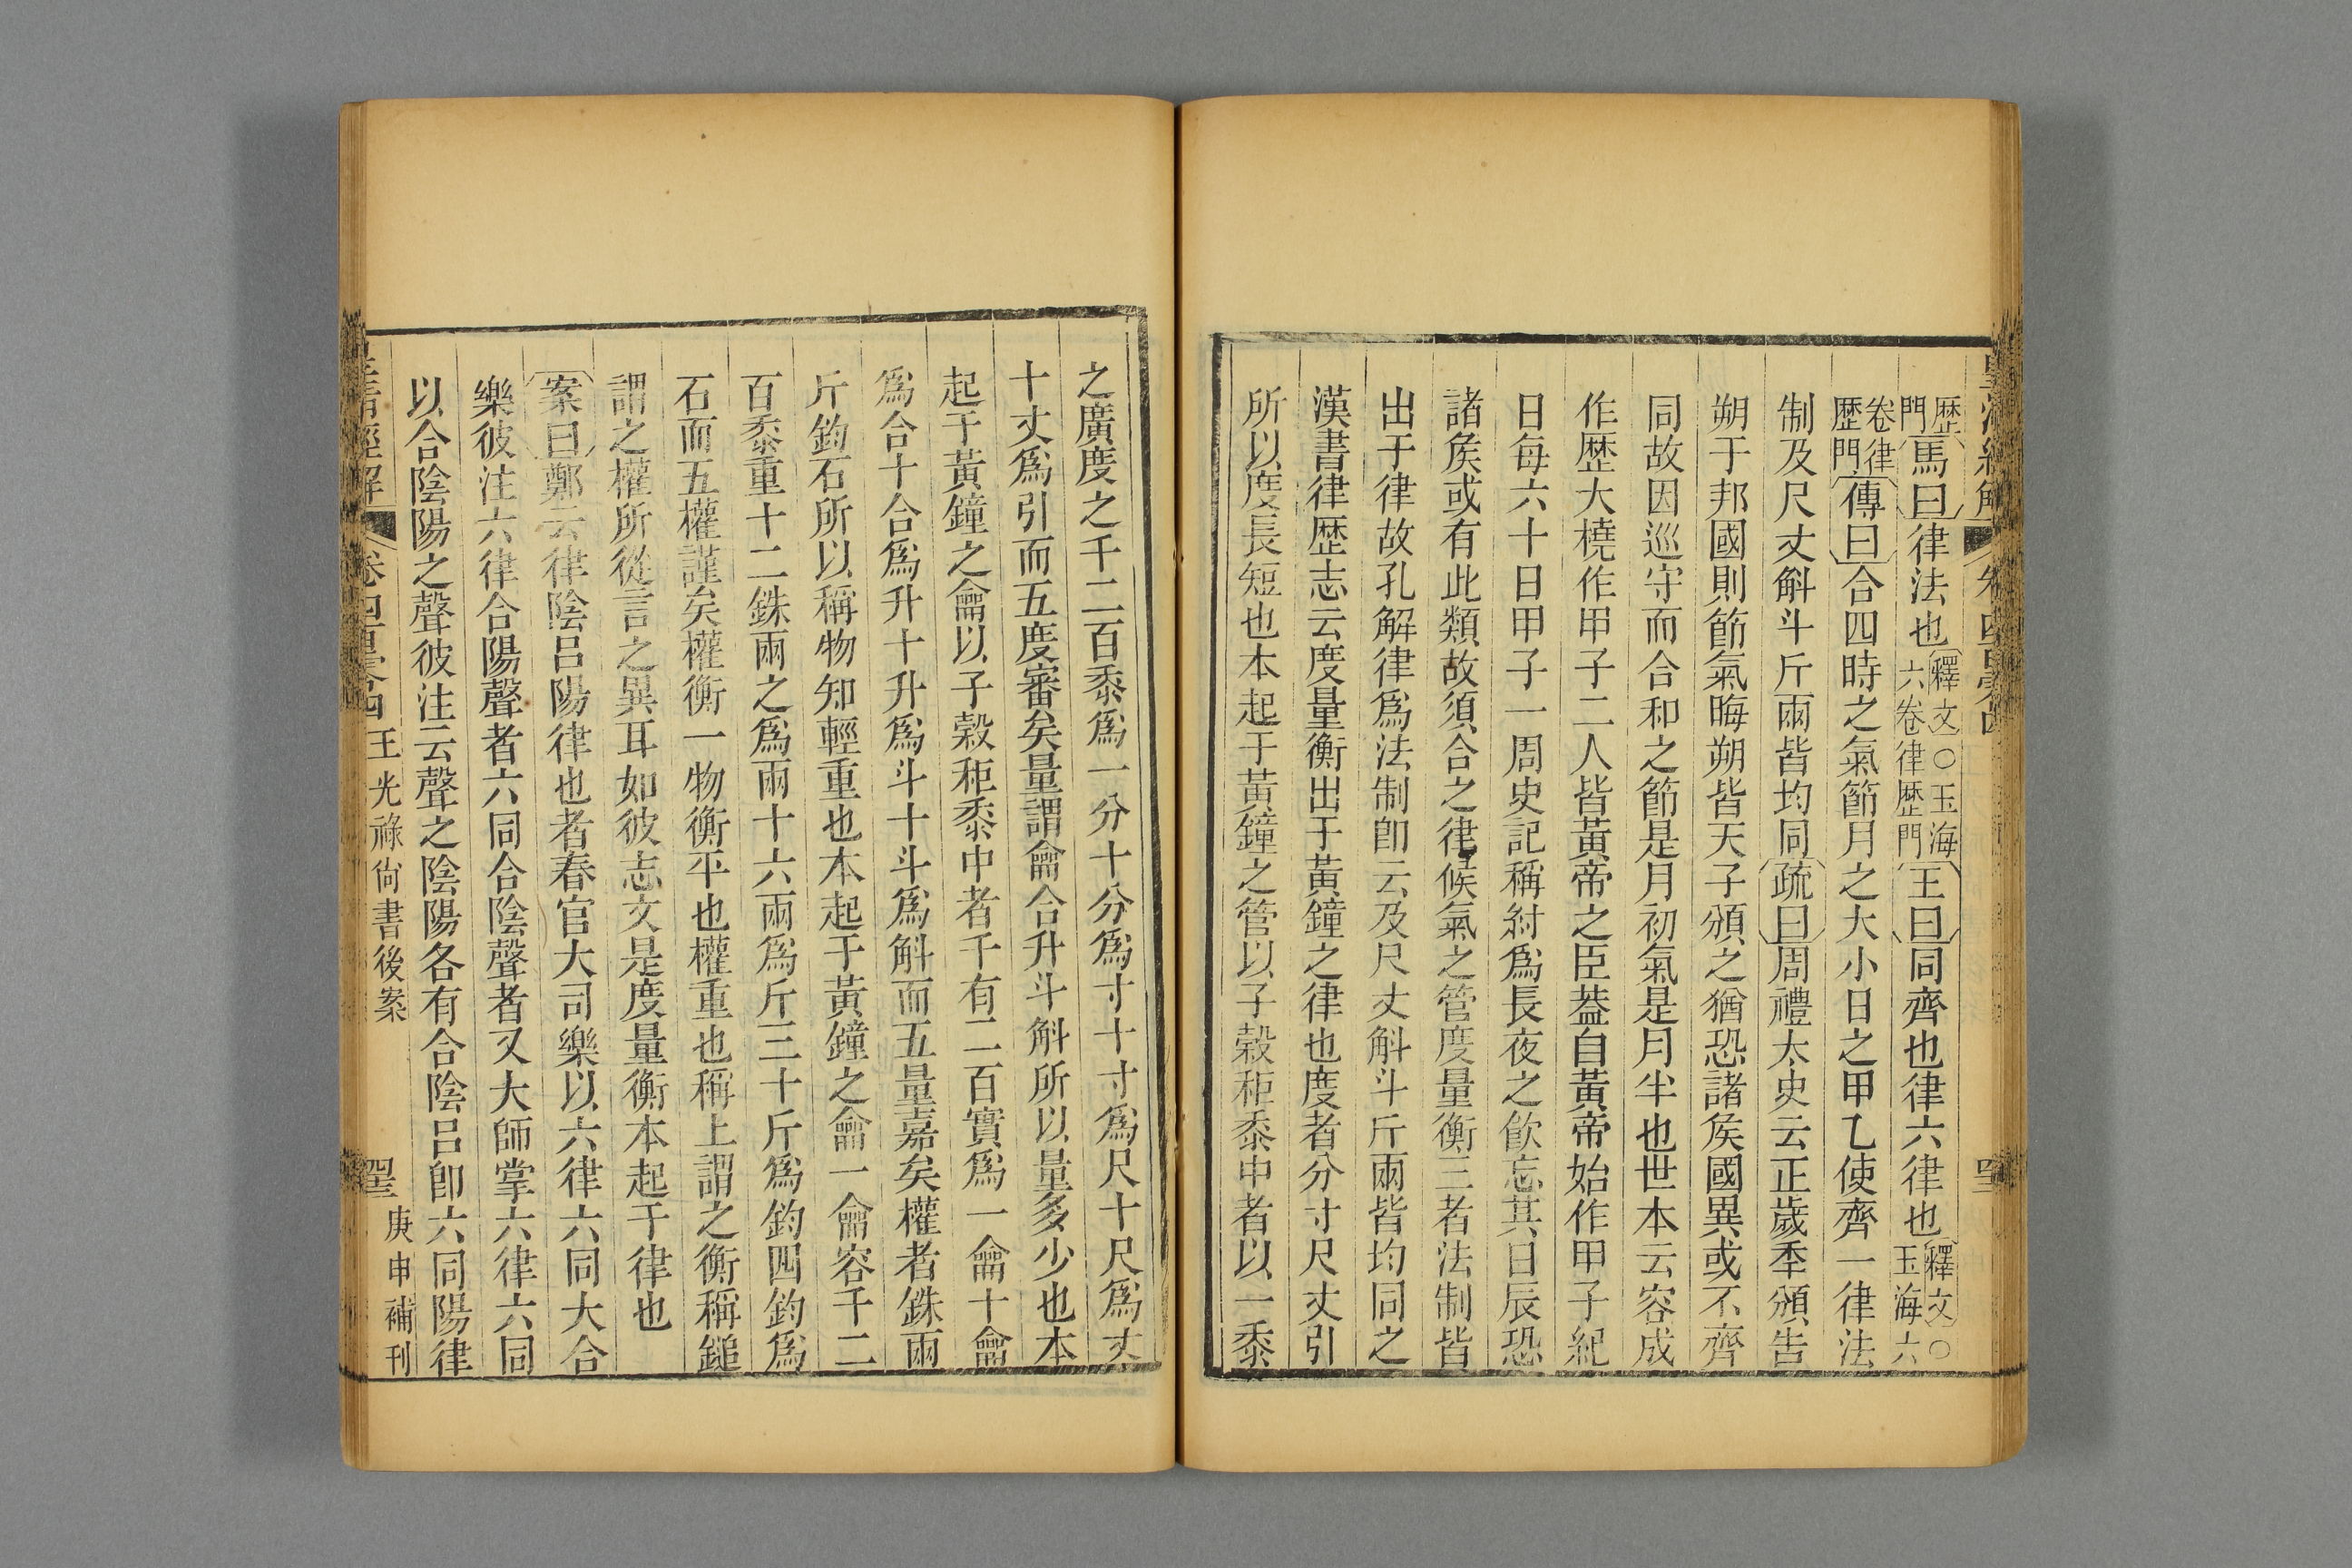 皇清經解 卷四百四
歷門馬曰律法也釋文〇玉海六卷律歷門王曰同齊也律六律也釋文〇玉海六
卷律歷門傳曰合四時之氣節月之大小日之甲乙使齊一律法
制及尺丈斛斗斤兩皆均同疏曰周禮太史云正歲秊頒告
朔于邦國則節氣晦朔皆天子頒之猶恐諸矦國異或不齊
同故因巡守而合和之節是月初氣是月半也世本云容成
作歷大橈作甲子二人皆黃帝之臣葢自黃帝始作甲子紀
日每六十日甲子一周史記稱紂爲長夜之飮忘其日辰恐
諸矦或有此類故須合之律候氣之管度量衡三者法制皆
出于律故孔解律爲法制卽云及尺丈斛斗斤兩皆均同之
漢書律歷志云度量衡出于黃鐘之律也度者分寸尺丈引
所以度長短也本起于黃鐘之管以子穀秬黍中者以一黍
之廣度之千二百黍爲一分十分爲寸十寸爲尺十尺爲丈
十丈爲引而五度審矣量謂龠合升斗斛所以量多少也本
起于黃鐘之龠以子穀秬黍中者千有二百實爲一龠十龠
爲合十合爲升十升爲斗十斗爲斛而五量嘉矣權者銖兩
斤鈞石所以稱物知輕重也本起于黃鐘之龠一龠容千二
百黍重十二銖兩之爲兩十六兩爲斤三十斤爲鈞四鈞爲
石而五權謹矣權衡一物衡平也權重也稱上謂之衡稱鎚
謂之權所從言之異耳如彼志文是度量衡本起于律也
案曰鄭云律陰呂陽律也者春官大司樂以六律六同大合
樂彼注六律合陽聲者六同合陰聲者又大師掌六律六同
以合陰陽之聲彼注云聲之陰陽各有合陰呂卽六同陽律
皇清經解 卷四百四 王光祿尙書後案 庚申補刊